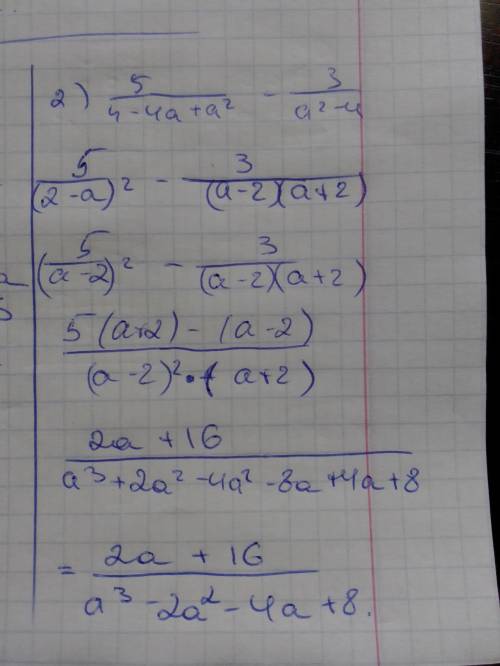 2) 5/(4-4a+a²) - 3/(a²-4
5/(2-a)² - 3/((a-2)(a+2))
5/(a-2)² - 3/((a-2)(a+2))
(5(a+2) - (a-2))/((a-2)²·(a+2))
(2a+16)/(a³+2a²-4a²-8a+4a+8)
= (2a+16)/(a³-2a²-4a+8).